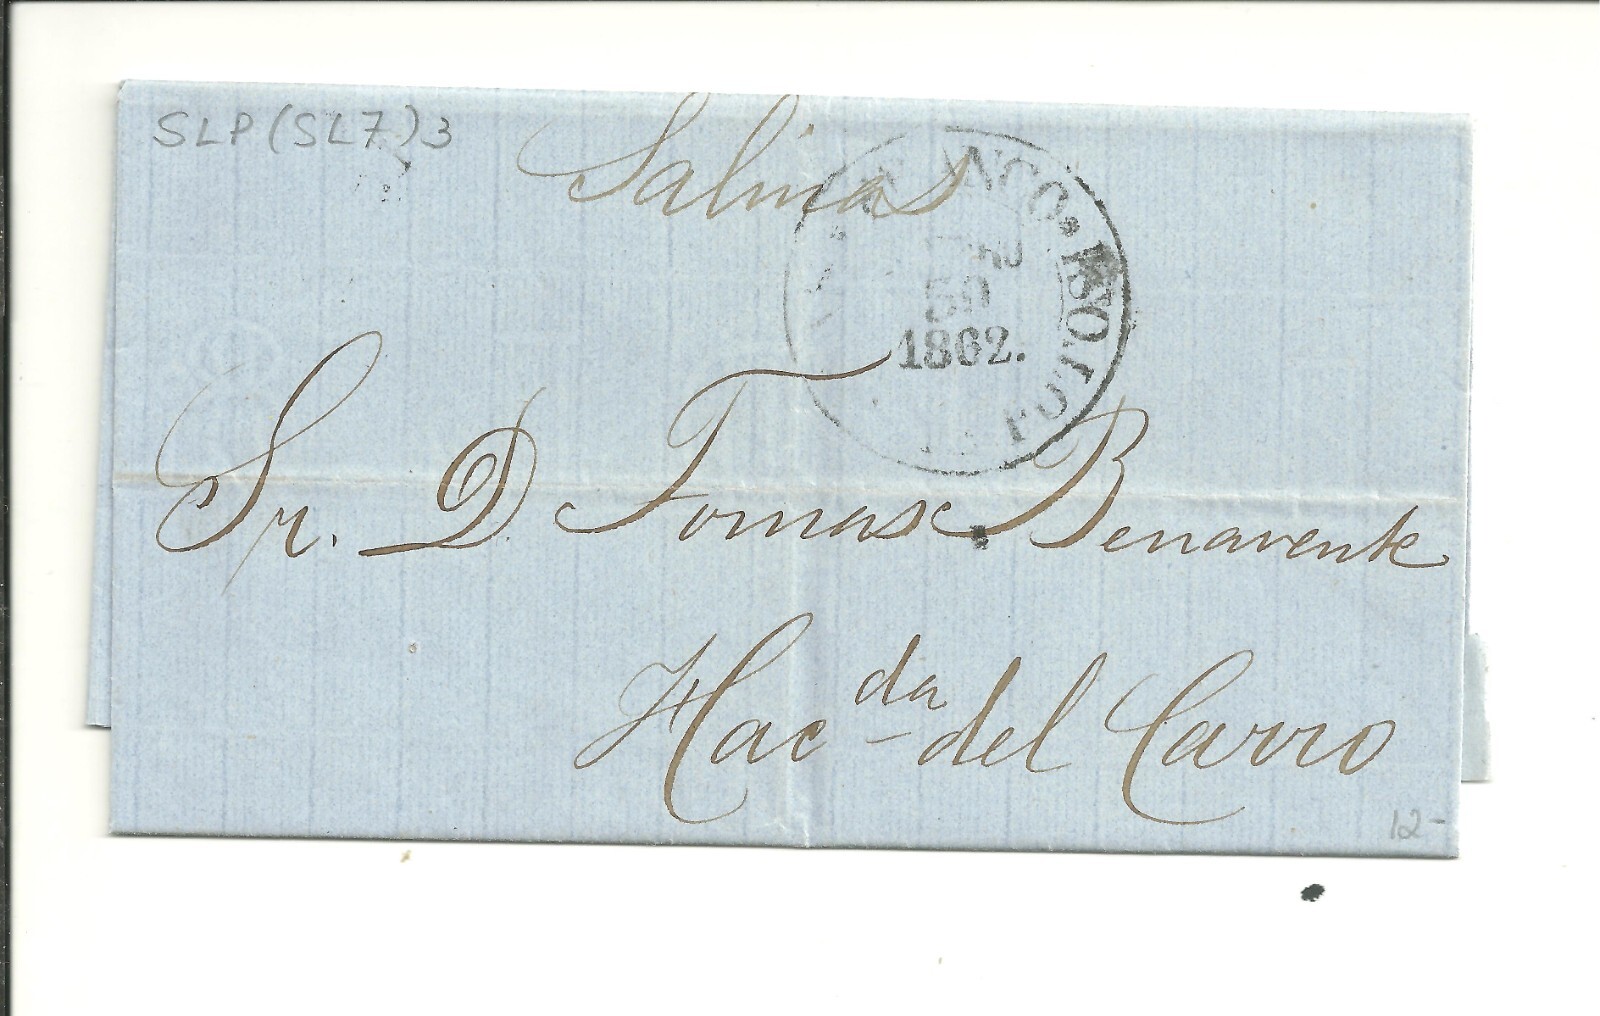 SLP (SL7) 3
Salinas
1862.
Sr. D. Tomas Benavente
Hac.da del Carro
12-